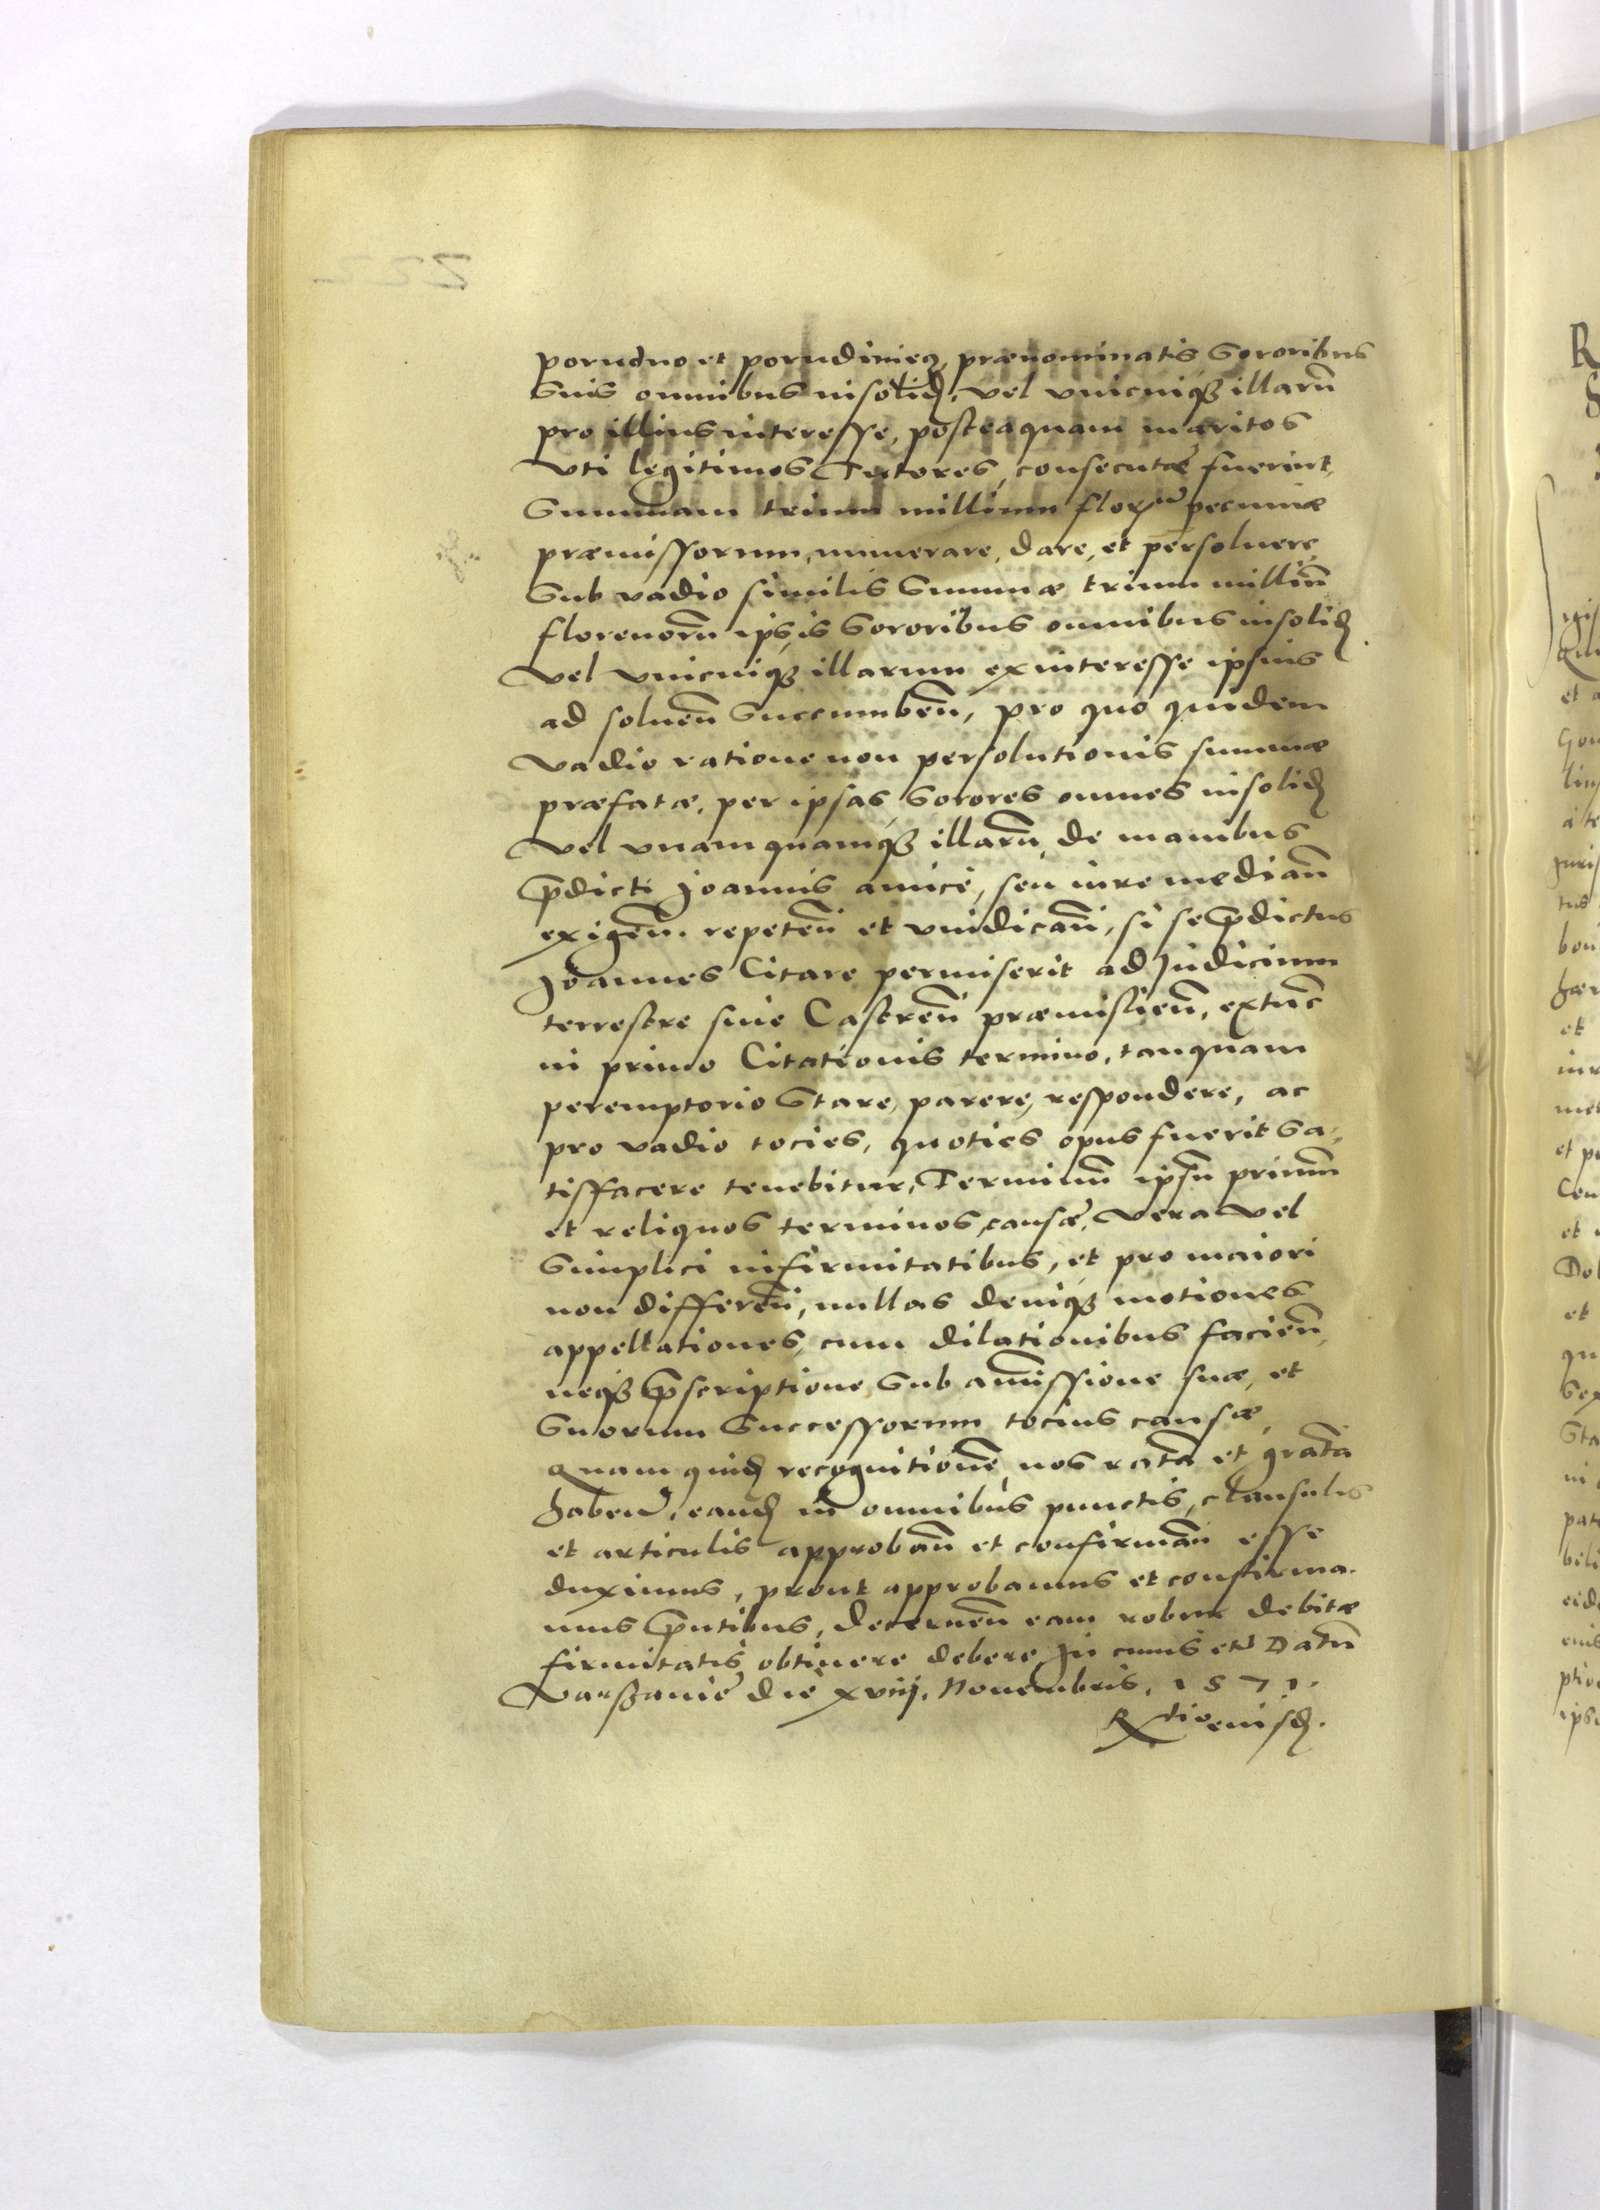 porudno et porudiniecz, prænominatis Sororibus
Suis omnibus insolid, vel vnicuiqꝫ illarū
pro illius interesse, posteaquam maritos
Vti legitimos Tutores, consecutæ fuerint,
Summam trium millium flor pecuniæ
præmissorum, numerare, dare, et persoluere,
Sub vadio similis Summæ trium milliū
florenorū ipsis Sororibus omnibus insolid
vel vnicuiqꝫ illarum ex interesse ipsius
ad soluen̄ Succumben̄, pro quo quidem
vadio ratione non persolutionis summæ
præfatæ, per ipsas Sorores omnes insolid
vel vnamquamqꝫ illarū, de manibus
p̄dicti Joannis amicè, seu iure median̄
exigen̄. repeten̄ et vindican̄, si se p̄dictus
Joannes Citare permiserit ad Judicium
terrestre siue Castren̄ præmislien̄, extūc
in primo Citationis termino, tanquam
peremptorio Stare, parere, respondere, ac
pro vadio tocies, quoties opus fuerit Sa-
tisfacere tenebitur, Terminū ipsū primū
et reliquos terminos causæ, vera vel
Simplici infirmitatibus, et pro maiori
non differen̄, nullas deniqꝫ motiones
appellationes, cum dilationibus facien̄,
neqꝫ p̄scriptione, Sub amissione suæ, et
Suorum Successorum tocius causæ,
Quam quid recognitionē nos ratā et gratā
haben̄, eand in omnibus punctis, clausulis
et articulis approban̄ et confirman̄ esse
duximus, prout approbamus et confirma-
mus p̄ntibus, decernen̄ eam robur debitæ
firmitatis obtinere debere, In cuius etc̄ Datū
Varssauiæ die xviij. Nouembris, 1571.
R tio eiusd.